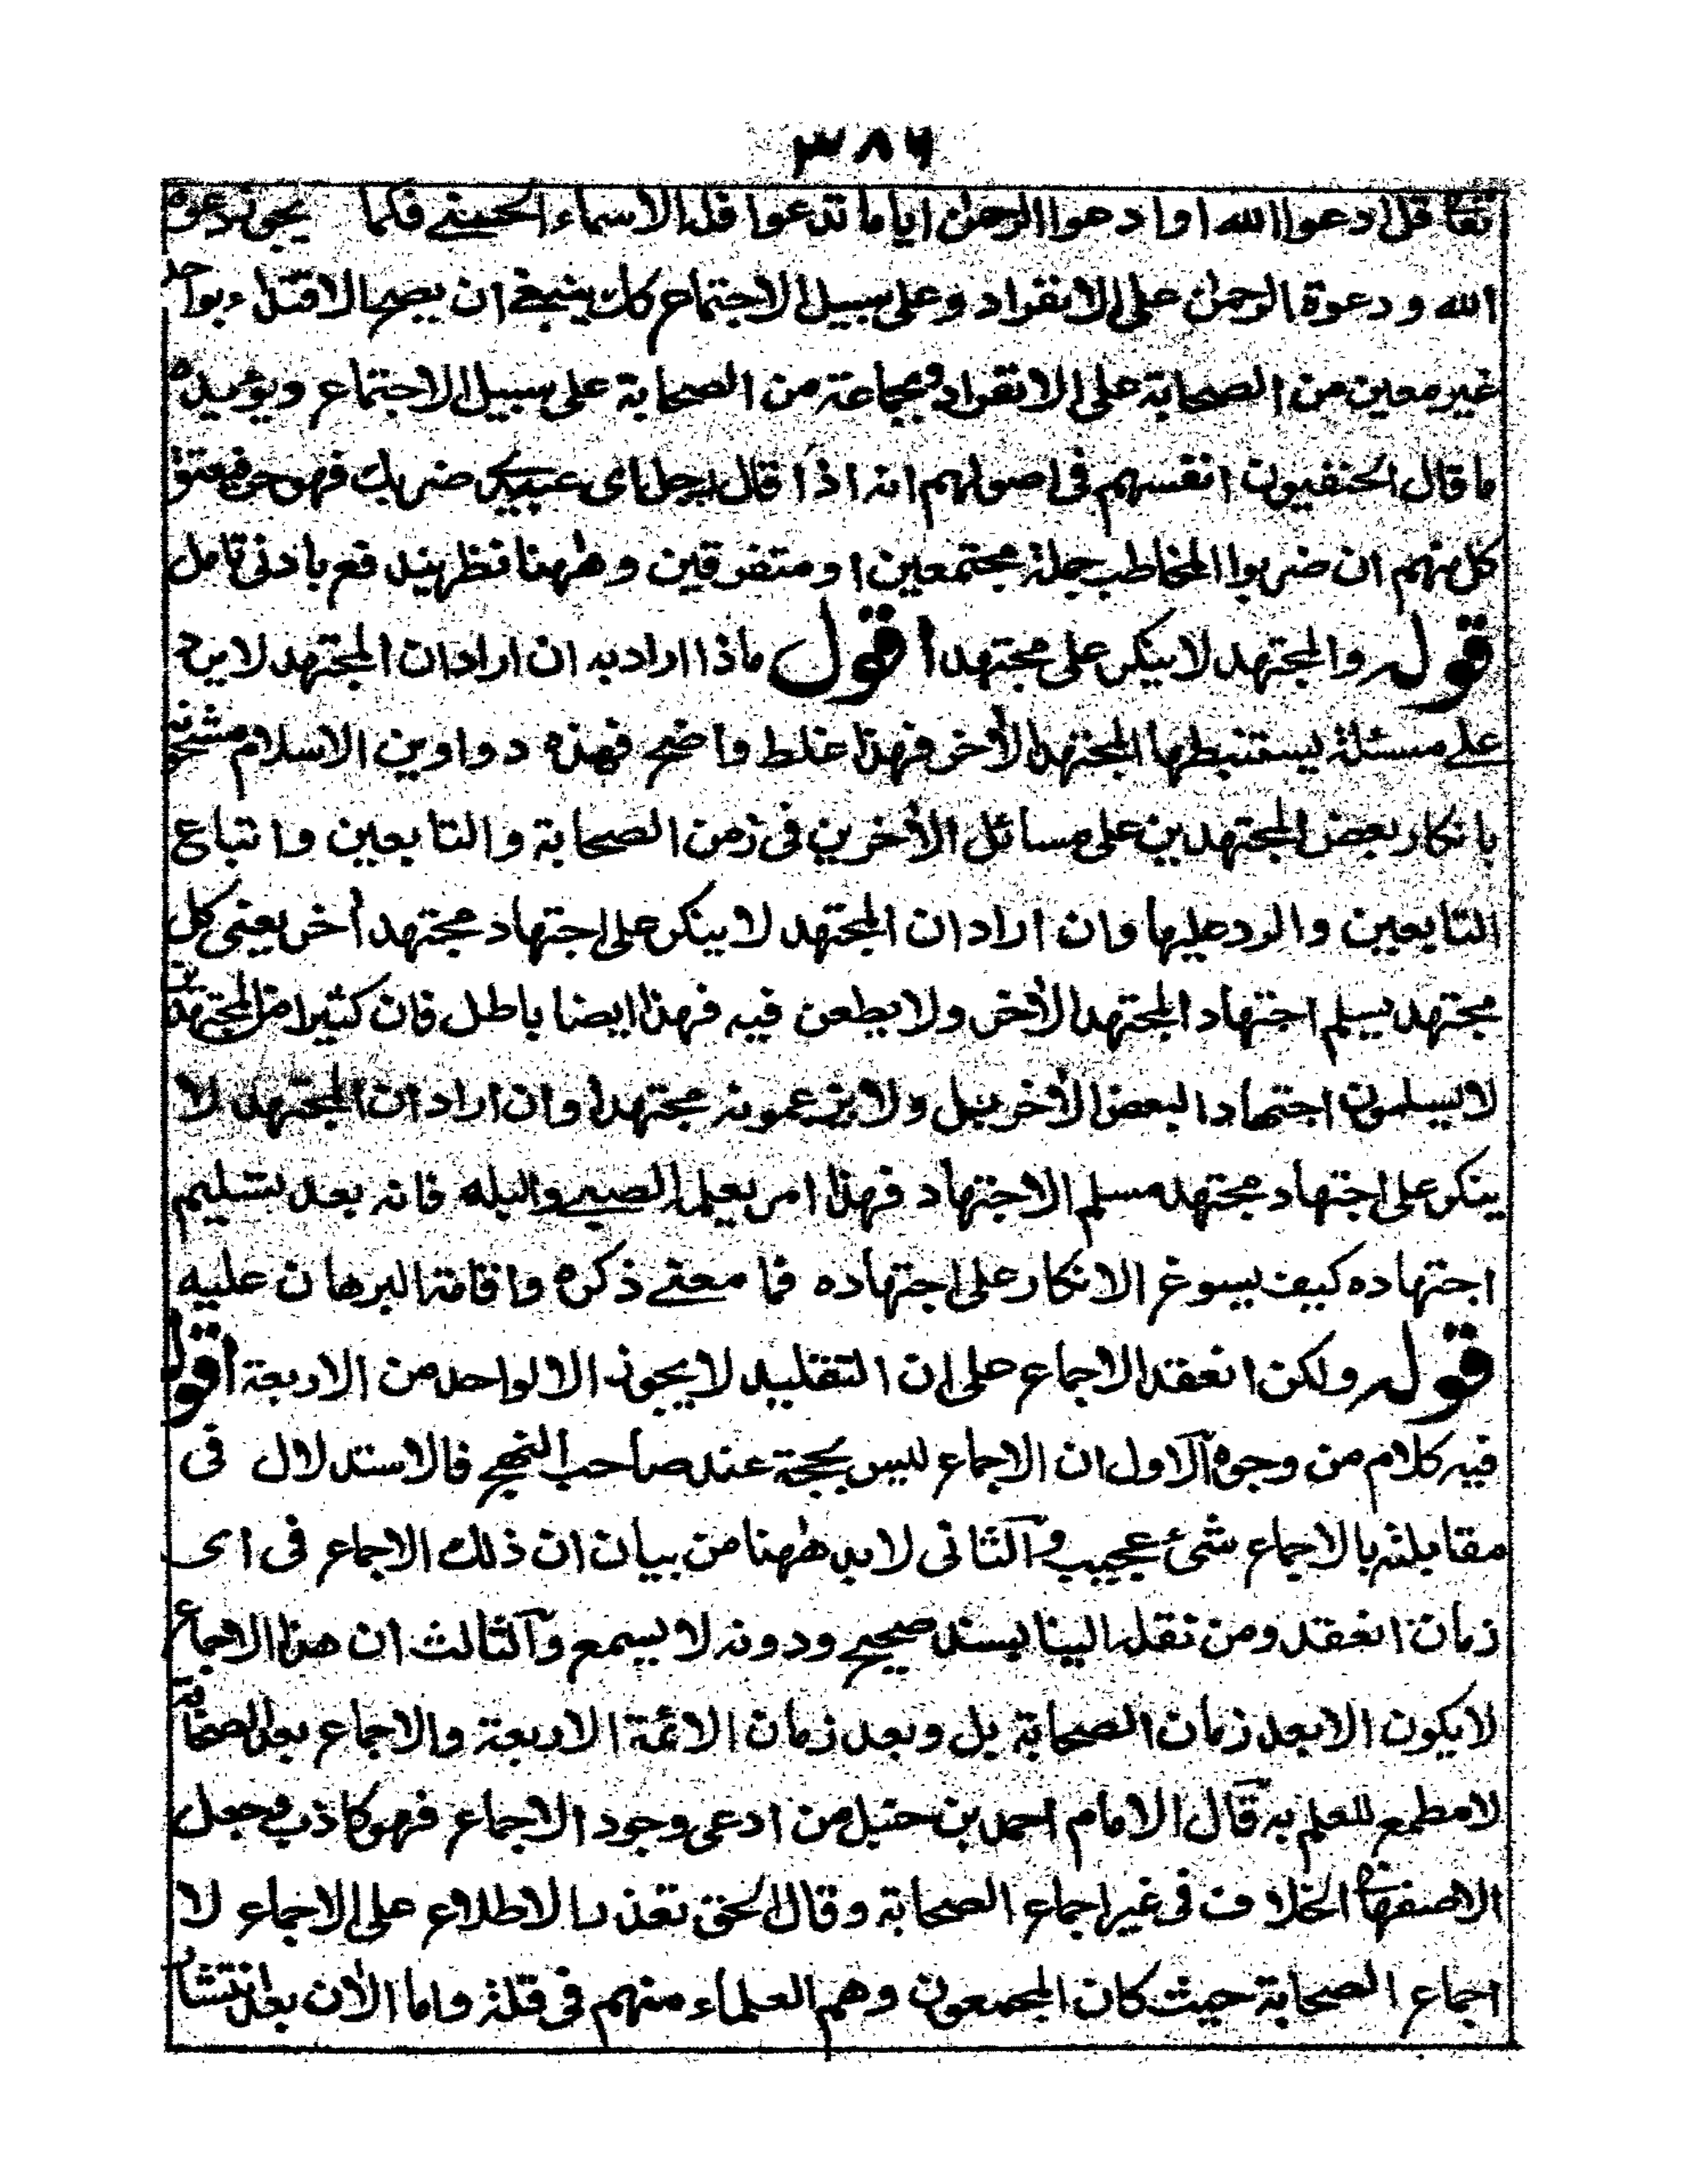 ٣٨٦
تعا قل ادعوا الله او ادعوا الرحمن ايا ما تدعوا فله الاسماء الحسنے فكما يجوز دعوة
الله و دعوة الرحمن على الانفراد وعلى سبيل الاجتماع كك ينبغے ان يصح الاقتداء بواحد
غير معين من الصحابة على الانفراد وبجماعة من الصحابة على سبيل الاجتماع ويؤيده
ما قال الحنفيون انفسهم فى اصولهم انه اذا قال رجل اى عبيدى ضربك فهو حر فيعتق
كل منهم ان ضربوا المخاطب جملة مجتمعين او متفرقين وههنا نظر يندفع بادنى تامل
قوله والمجتهد لا ينكر على مجتهد اقول ماذا اراد به ان اراد ان المجتهد لا يرد
علے مسئلة يستنبطها المجتهد الأخر فهذا غلط واضح فهذه دواوين الاسلام مشحونة
بانكار بعض المجتهدين على مسائل الأخرين فى زمن الصحابة والتابعين واتباع
التابعين والرد عليها وان اراد ان المجتهد لا ينكر على اجتهاد مجتهد أخر يعنى كل
مجتهد يسلم اجتهاد المجتهد الأخر ولا يطعن فيه فهذا ايضا باطل فان كثيرا من المجتهدين
لا يسلمون اجتهاد البعض الأخر بل ولا يزعمونه مجتهدا وان اراد ان المجتهد لا
ينكر على اجتهاد مجتهد مسلم الاجتهاد فهذا امر يعلمه الصبے والبله فانه بعد تسليم
اجتهاده كيف يسوغ الانكار على اجتهاده فما معنے ذكره واقامة البرهان عليه
قوله ولكن انعقد الاجماع على ان التقليد لا يجوز الا لواحد من الاربعة اقول
فيه كلام من وجوه الاول ان الاجماع ليس بحجة عند صاحب النهج فالاستدلال فى
مقابلته بالاجماع شئ عجيب والثانى لا بد ههنا من بيان ان ذلك الاجماع فى اى
زمان انعقد ومن نقله الينا بسند صحيح ودونه لا يسمع والثالث ان هذا الاجماع
لا يكون الا بعد زمان الصحابة بل وبعد زمان الائمة الاربعة والاجماع بعد الصحابة
لا مطمع للعلم به قال الامام احمد بن حنبل من ادعى وجود الاجماع فهو كاذب وجعل
الاصفهانى الخلاف فى غير اجماع الصحابة وقال الحق تعذر الاطلاع على الاجماع لا
اجماع الصحابة حيث كان المجمعون وهم العلماء منهم فى قلة واما الأن بعد انتشار